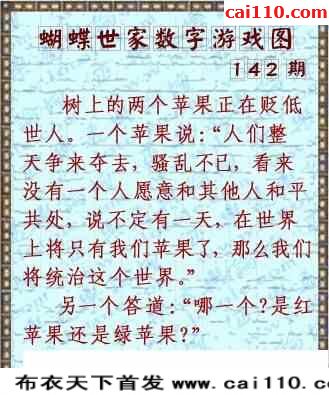 cai110.com
蝴蝶世家数字游戏图
142期
树上的两个苹果正在贬低
世人。一个苹果说:“人们整
天争来夺去，骚乱不已，看来
没有一个人愿意和其他人和平
共处，说不定有一天，在世界
上将只有我们苹果了，那么我们
将统治这个世界。”
另一个答道:“哪一个?是红
苹果还是绿苹果?”
布衣天下首发 www.cai110.c